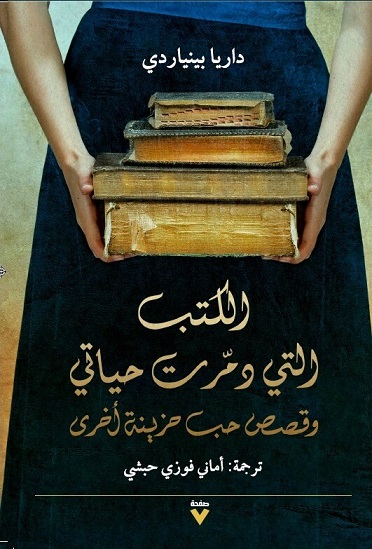 داريا بينياردي
الكتب
التي دمّرت حياتي
وقصص حب حزينة أخرى
ترجمة: أماني فوزي حبشي
صفحة
٧